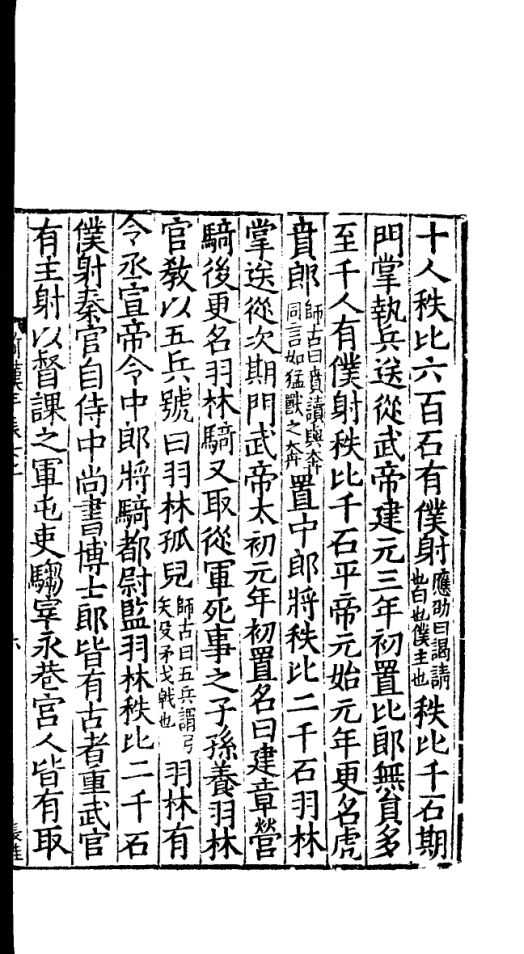 十人秩比六百石有僕射應劭曰謁請也自也僕主也秩比千石期
門掌執兵送從武帝建元三年初置比郎無貟多
至千人有僕射秩比千石平帝元始元年更名虎
賁郎師古曰賁讀與奔同言如猛獸之奔置中郎將秩比二千石羽林
掌送從次期門武帝太初元年初置名曰建章營
騎後更名羽林騎又取從軍死事之子孫養羽林
官敎以五兵號曰羽林孤兒師古曰五兵謂弓矢殳矛戈戟也羽林有
令丞宣帝令中郎將騎都尉監羽林秩比二千石
僕射秦官自侍中尚書博士郎皆有古者重武官
有主射以督課之軍屯吏騶宰永巷宮人皆有取